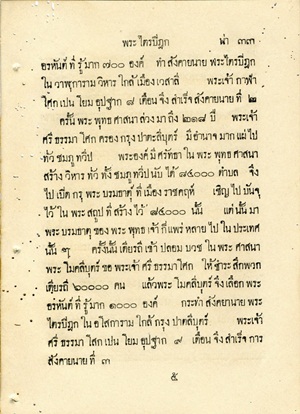 พระ ไตรปีฎก น่า ๓๓
อรหันต์ ที่ รู้ มาก ๗๐๐ องค์ ทำ สังคายนาย พระไตรปีฎก
ใน วาฬุการาม วิหาร ใกล้ เมือง เวสาลี พระเจ้า กาฬา
โศก เปน โยม อุปฐาก ๗ เดือน จึง สำเร็จ สังคายนาย ที่ ๒
ครั้น พระ พุทธ ศาสนา ล่วง มา ถึง ๒๑๘ ปี พระเจ้า
ศรี ธรรมา โศก ครอง กรุง ปาตะลีบุตร์ มี อำนาจ มาก แผ่ ไป
ทั่ว ชมภู ทวีป พระองค์ มี ศรัทธา ใน พระ พุทธ ศาสนา
สร้าง วิหาร ทั่ว ทั้ง ชมภู ทวีป นับ ได้ ๘๔๐๐๐ ตำบล จึง
ไป เปิด กรุ พระ บรมธาตุ ที่ เมือง ราชคฤห์ เชิญ ไป บันจุ
ไว้ ใน พระ สถูป ที่ สร้าง ไว้ ๘๔๐๐๐ นั้น แต่ นั้น มา
พระ บรมธาตุ ของ พระ พุทธ เจ้า ก็ แพร่ หลาย ไป ใน ประเทศ
นั้น ๆ ครั้งนั้น เดียรถี เข้า ปลอม บวช ใน พระ ศาสนา
พระ โมคลีบุตร์ ขอ พระเจ้า ศรี ธรรมา โศก ให้ ชำระ สึกพวก
เดียรถี ๖๐๐๐๐ คน แล้วพระ โมคลีบุตร์ จึง เลือก พระ
อรหันต์ ที่ รู้ มาก ๑๐๐๐ องค์ กระทำ สังคายนาย พระ
ไตรปีฎก ใน อโสการาม ใกล้ กรุง ปาตะลีบุตร์ พระเจ้า
ศรี ธรรมา โสก เปน โยม อุปฐาก ๙ เดือน จึง สำเร็จ การ
สังคายนาย ที่ ๓
๕